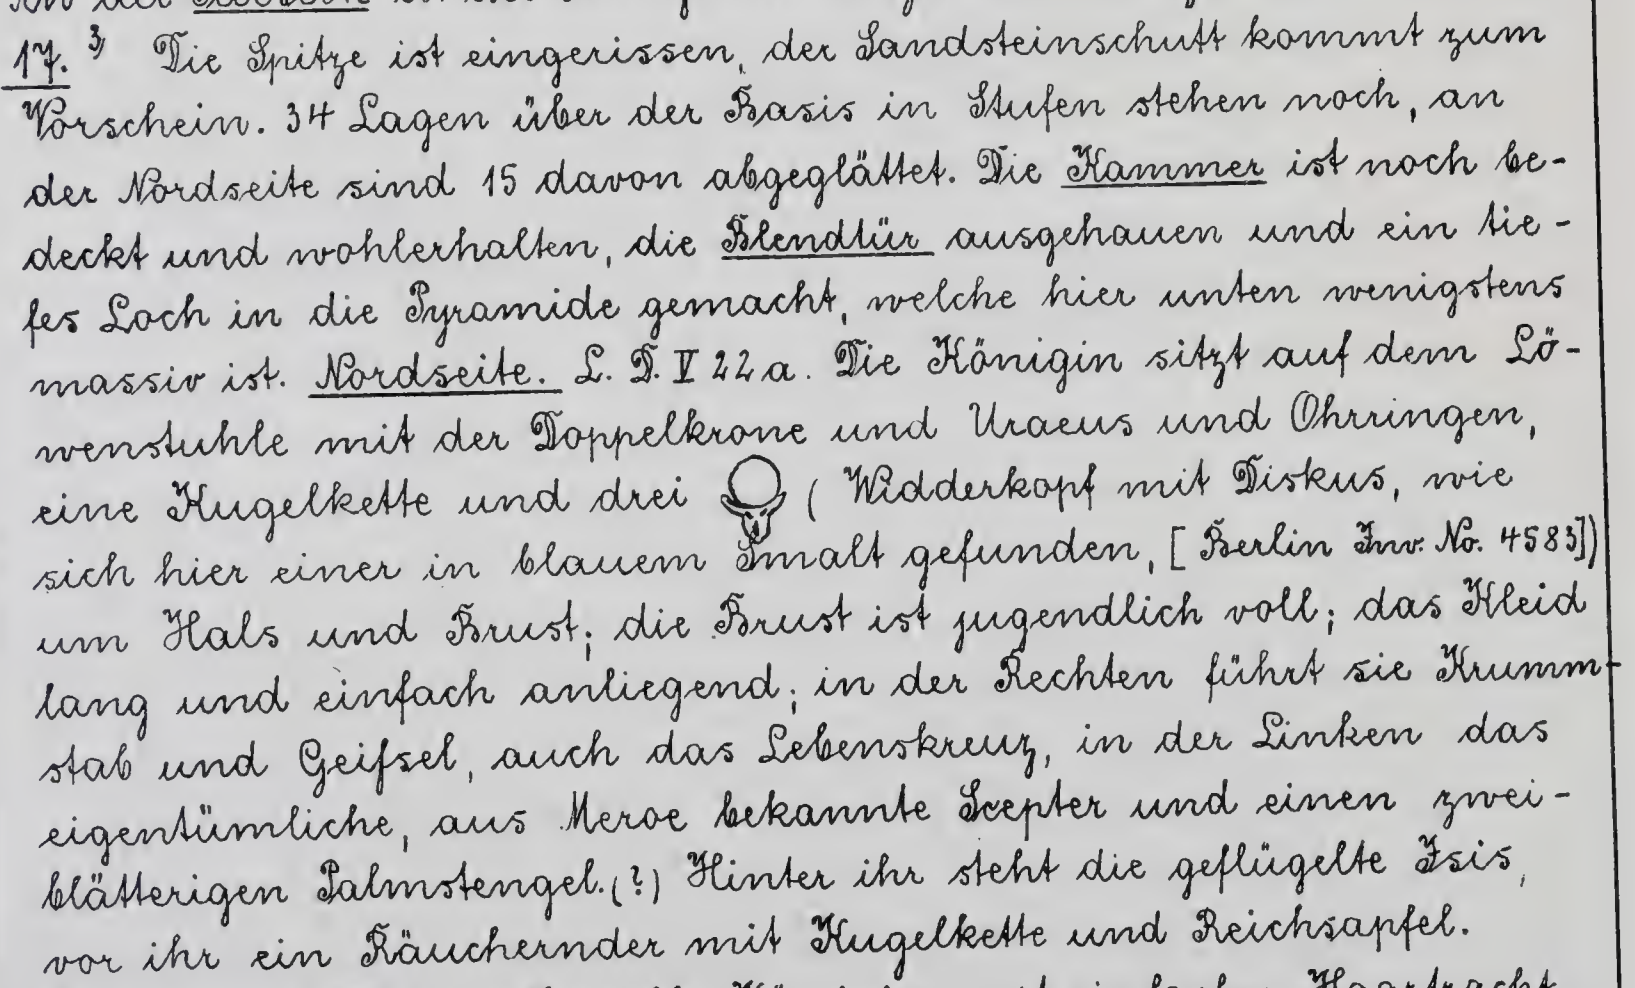 17. 3) Die Spitze ist eingerissen, der Sandsteinschutt kommt zum
Vorschein. 34 Lagen über der Basis in Stufen stehen noch, an
der Nordseite sind 15 davon abgeglättet. Die Kammer ist noch be-
deckt und wohlerhalten, die Blendtür ausgehauen und ein tie-
fes Loch in die Pyramide gemacht, welche hier unten wenigstens
massiv ist. Nordseite. L. D. V 22 a. Die Königin sitzt auf dem Lö-
wenstuhle mit der Doppelkrone und Uraeus und Ohrringen,
eine Kugelkette und drei ( Widderkopf mit Diskus, wie
sich hier einer in blauem Smalt gefunden, [Berlin Inv. No. 4583])
um Hals und Brust; die Brust ist jugendlich voll; das Kleid
lang und einfach anliegend; in der Rechten führt sie Krumm-
stab und Geifsel, auch das Lebenskreuz, in der Linken das
eigentümliche, aus Meroe bekannte Scepter und einen zwei-
blätterigen Palmstengel. (?) Hinter ihr steht die geflügelte Isis,
vor ihr ein Räuchernder mit Kugelkette und Reichsapfel.